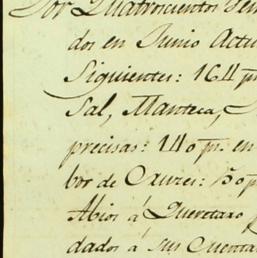 Por Quatrocientos
dos en Junio Actu
Siguientes: 164 pr
Sal, Manteca,
precisas: 140 pr. en
bor de
Abios á Queretaro
dados á sus Cuenta